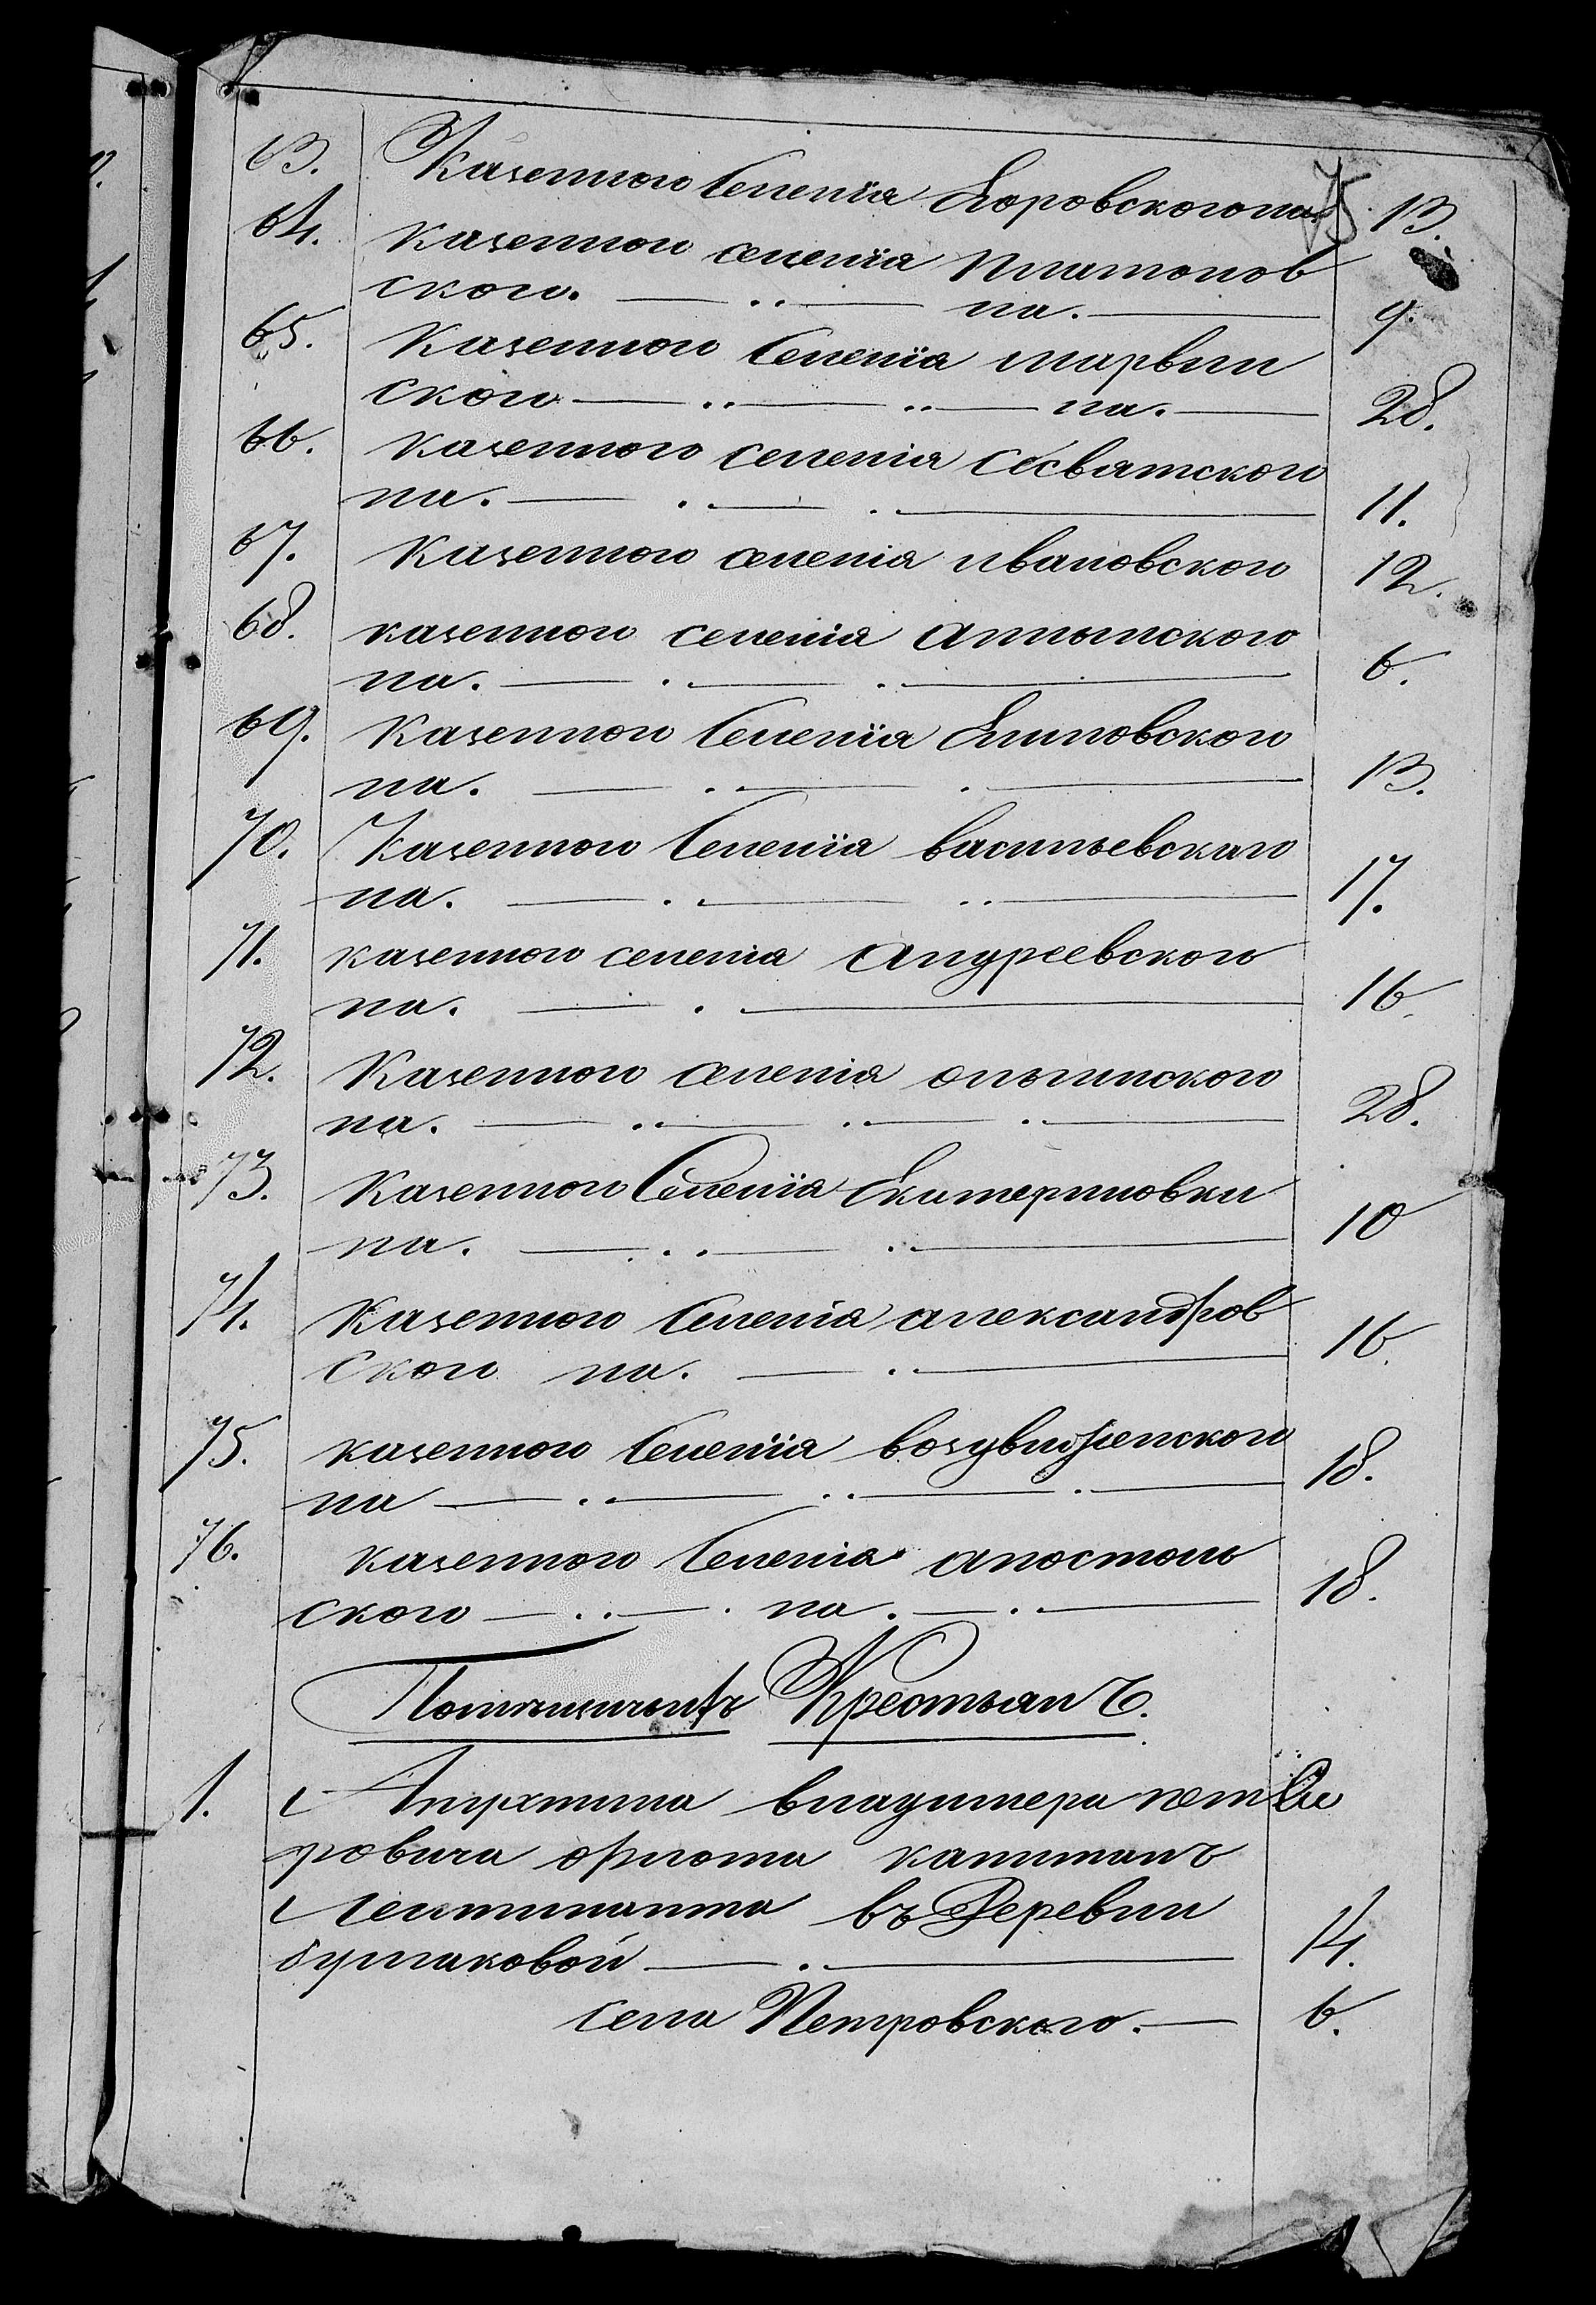 75
63. Казенного Селенїя Боровского на. 13.
64. Казенного селенїя Платонов
ского. на. 9.
65. Казенного Селенїя
ского на. 28.
66. Казенного селенія Сесвятского
на. 11.
67. Казенного селенія ивановского 12.
68. казенного селенія
на. 6.
69. Казенного Селенїя
на. 13.
70. Казенного Селенїя васильевскаго
на. 17.
71. казенного селенія андреевского
на. 16.
72. Казенного селенія ольгинского
на. 28.
73. Казенного Селенїя Екатериновки
на. 10
74. Казенного Селенія александров
ского на. 16.
75. казенного Селенїя воздвиженского
на 18.
76. казенного Селенія апостоль
ского на. 18.
Крестьянъ.
1. владимера пет
ровича флота капитанъ
Леитинанта въ Деревни
бурлаковой 14.
села Петровского. 6.